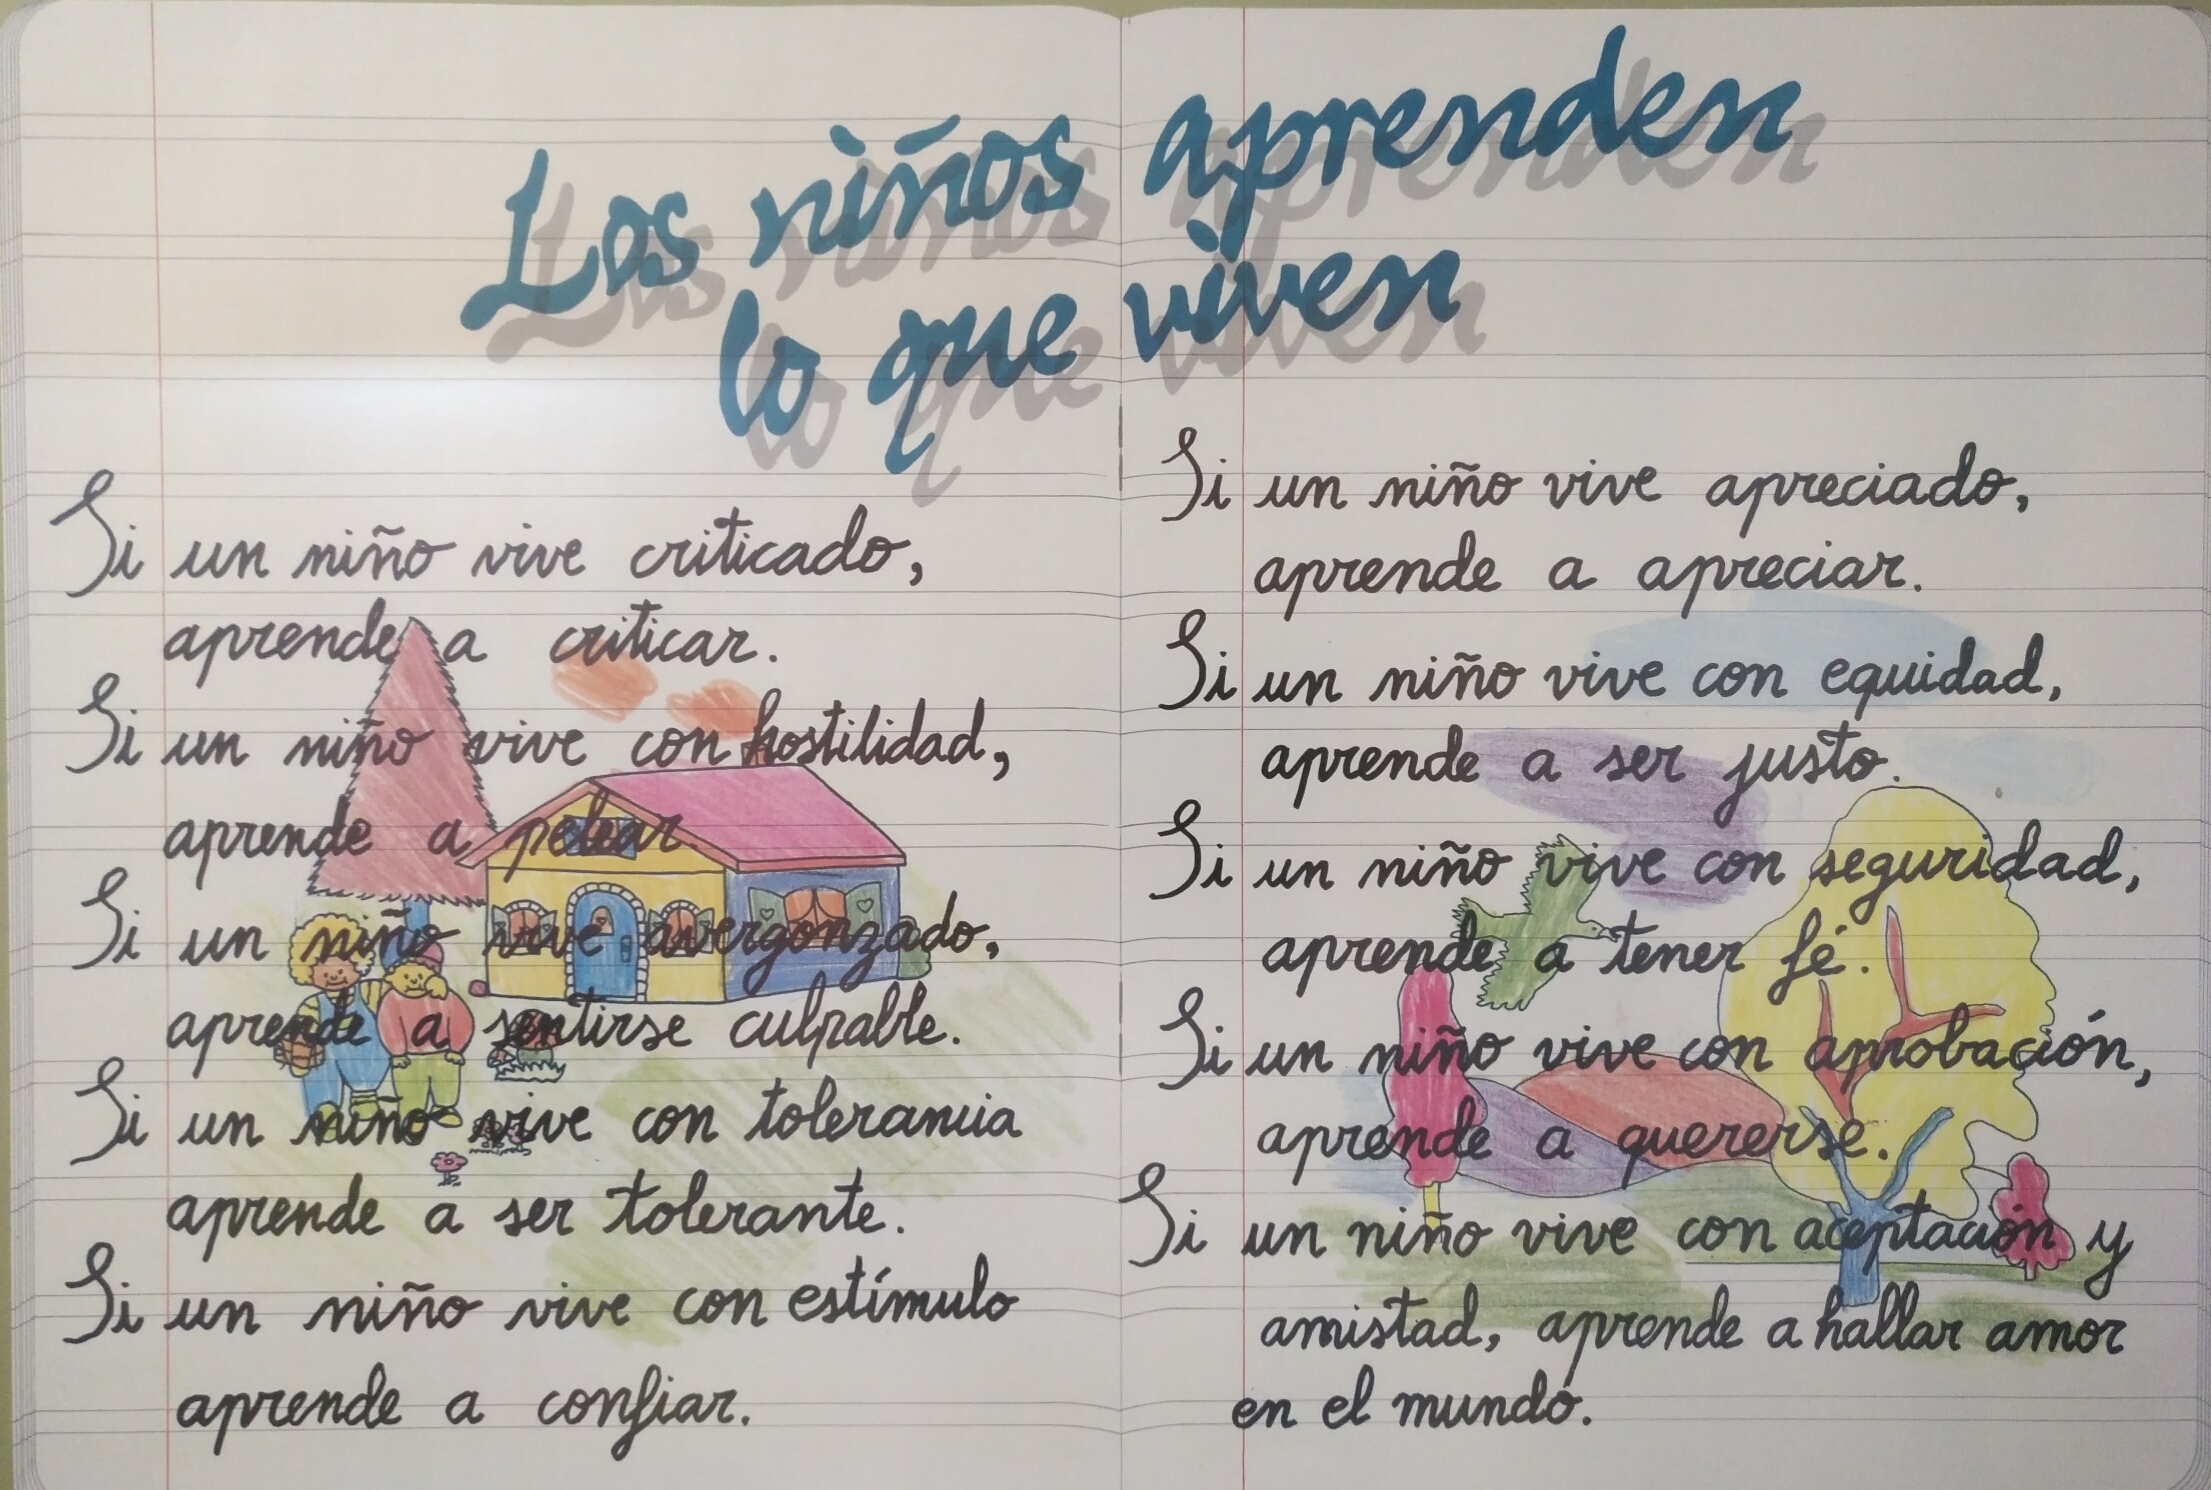 Los niños aprenden
lo que viven
Si un niño vive criticado,
aprende a criticar.
Si un niño vive con hostilidad,
aprende a pelear.
Si un niño vive avergonzado,
aprende a sentirse culpable.
Si un niño vive con tolerancia
aprende a ser tolerante.
Si un niño vive con estímulo
aprende a confiar.
Si un niño vive apreciado,
aprende a apreciar.
Si un niño vive con equidad,
aprende a ser justo.
Si un niño vive con seguridad,
aprende a tener fé.
Si un niño vive con aprobación,
aprende a quererse.
Si un niño vive con aceptación y
amistad, aprende a hallar amor
en el mundo.